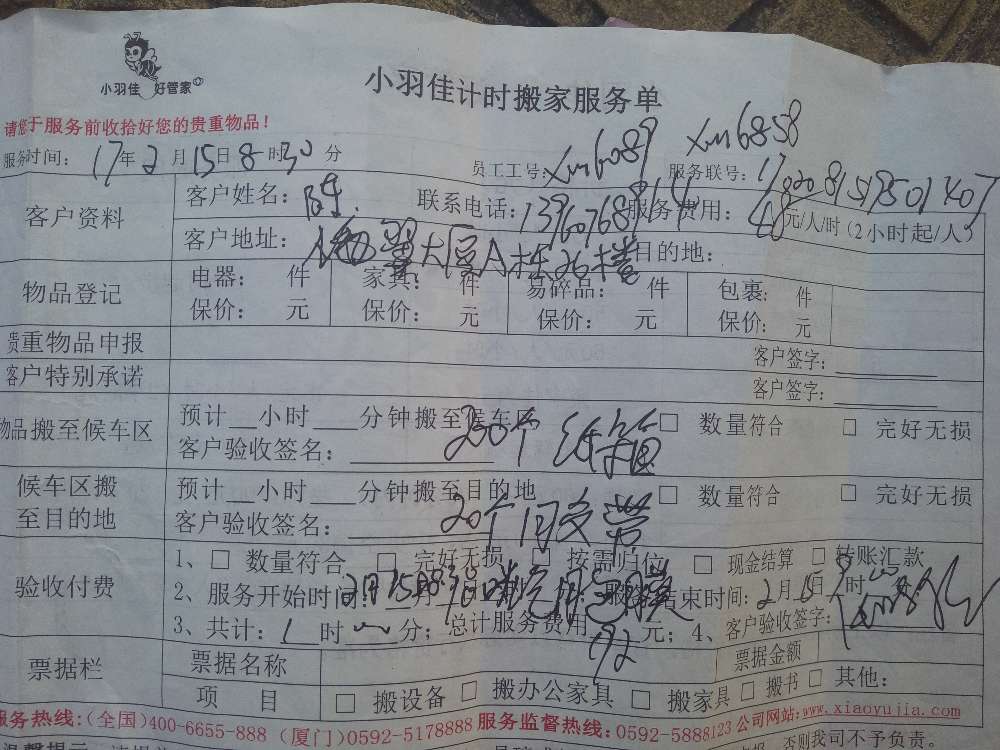 小羽佳 好管家
小羽佳计时搬家服务单
请您于服务前收拾好您的贵重物品！
服务时间：17年2月15日8时30分 员工工号：xm6089 xm6858 服务联号：
客户资料 客户姓名：陈 联系电话：13960768914 服务费用：48元/人/时(2小时起/人)
客户地址：大厦A栋26楼 目的地：
物品登记 电器： 件 家具： 件 易碎品： 件 包裹： 件
保价： 元 保价： 元 保价： 元 保价： 元
贵重物品申报 客户签字：
客户特别承诺 客户签字：
物品搬至候车区 预计__小时___分钟搬至候车区 □ 数量符合 □ 完好无损
客户验收签名： 200个纸箱
候车区搬至目的地 预计__小时___分钟搬至目的地 □ 数量符合 □ 完好无损
客户验收签名： 20个月交带
验收付费 1、□ 数量符合 □ 完好无损 □ 按需归位 □ 现金结算 □ 转账汇款
2、服务开始时间：2月15日8 月 结束时间：2月15日 时
3、共计：1时 分；总计服务费用192元；4、客户验收签字：
票据栏 票据名称 票据金额
项 目 □ 搬设备 □ 搬办公家具 □ 搬家具 □ 搬书 □ 其他：
服务热线：(全国)400-6655-888 (厦门)0592-5178888 服务监督热线：0592-5888123 公司网站：www.xiaoyujia.com
否则我司不予负责。